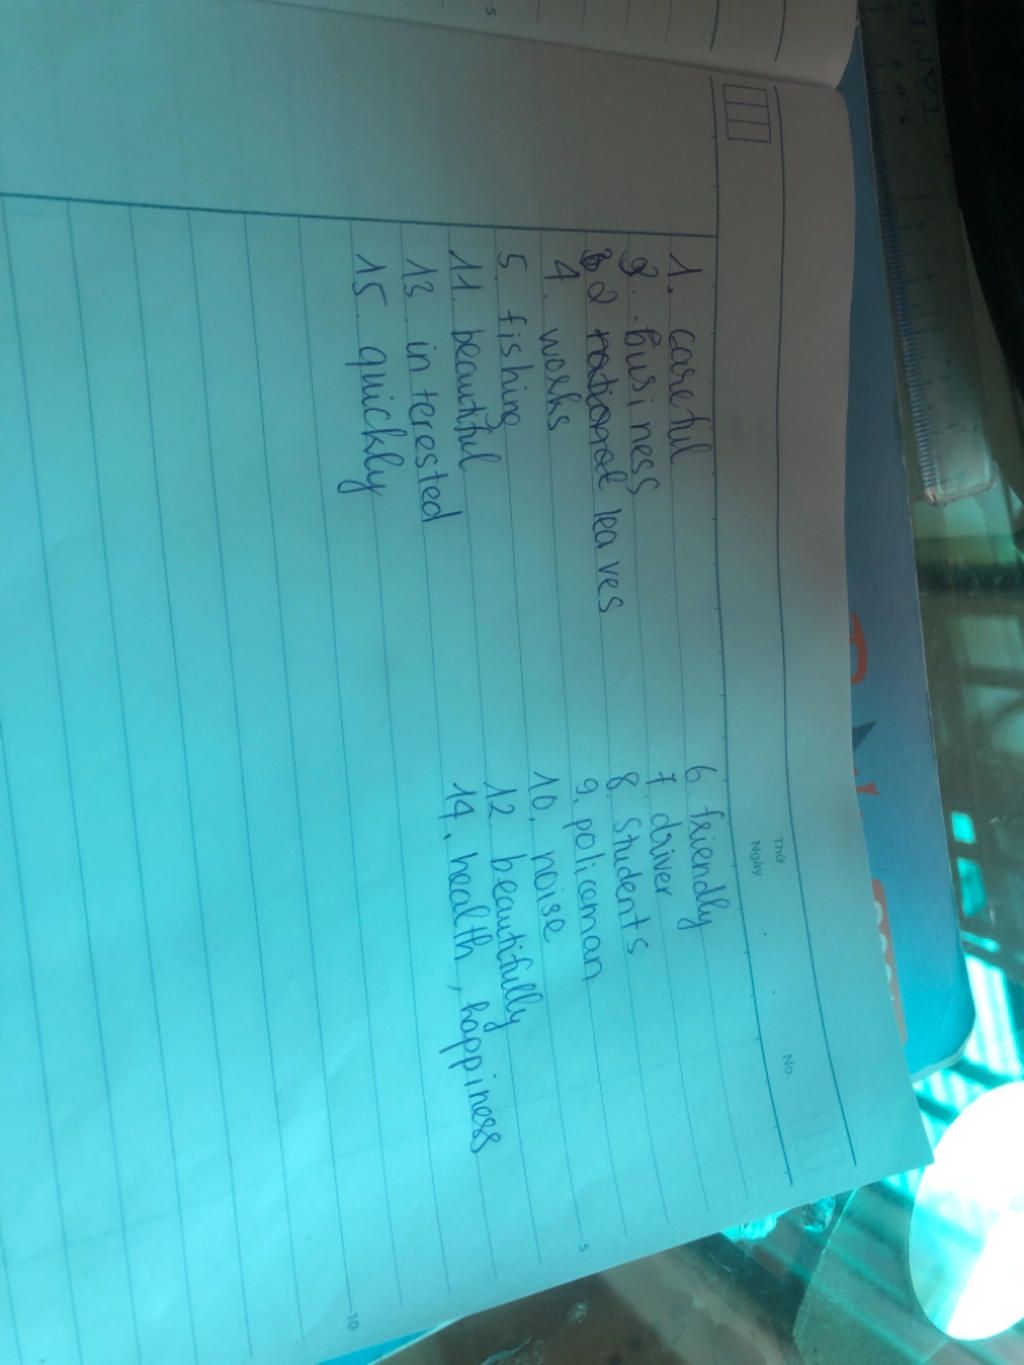 Thứ
Ngày
No.
1. careful
2. business
3. leaves
4. works
5. fishing
11. beautiful
13. interested
15. quickly
6. friendly
7. driver
8. students
9. policeman
10. noise
12. beautifully
14. health, happiness
5
10
5